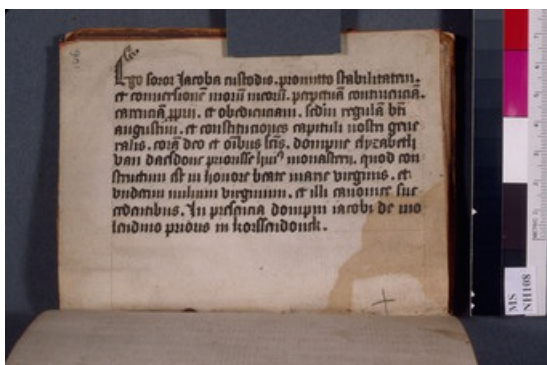 Ego soror Jacoba custodis. promitto stabilitatem.
et conversionē morū meorū. perpetuā continenciā.
carenciā ꝓprii. et obedienciam. scdm regulā bti
augustini. et constituciones capituli nostri gene
ralis. corā deo et oībus sctis. dompne elyzabeth
van daesdonc priorisse huiꝰ monasterii. quod con
structum est in honore beate marie virginis. et
undecim milium virginum. et illi canonice suc
cedentibus. In presencia dompni iacobi de mo
lendino prioris in korssendonck.
MS
NH108